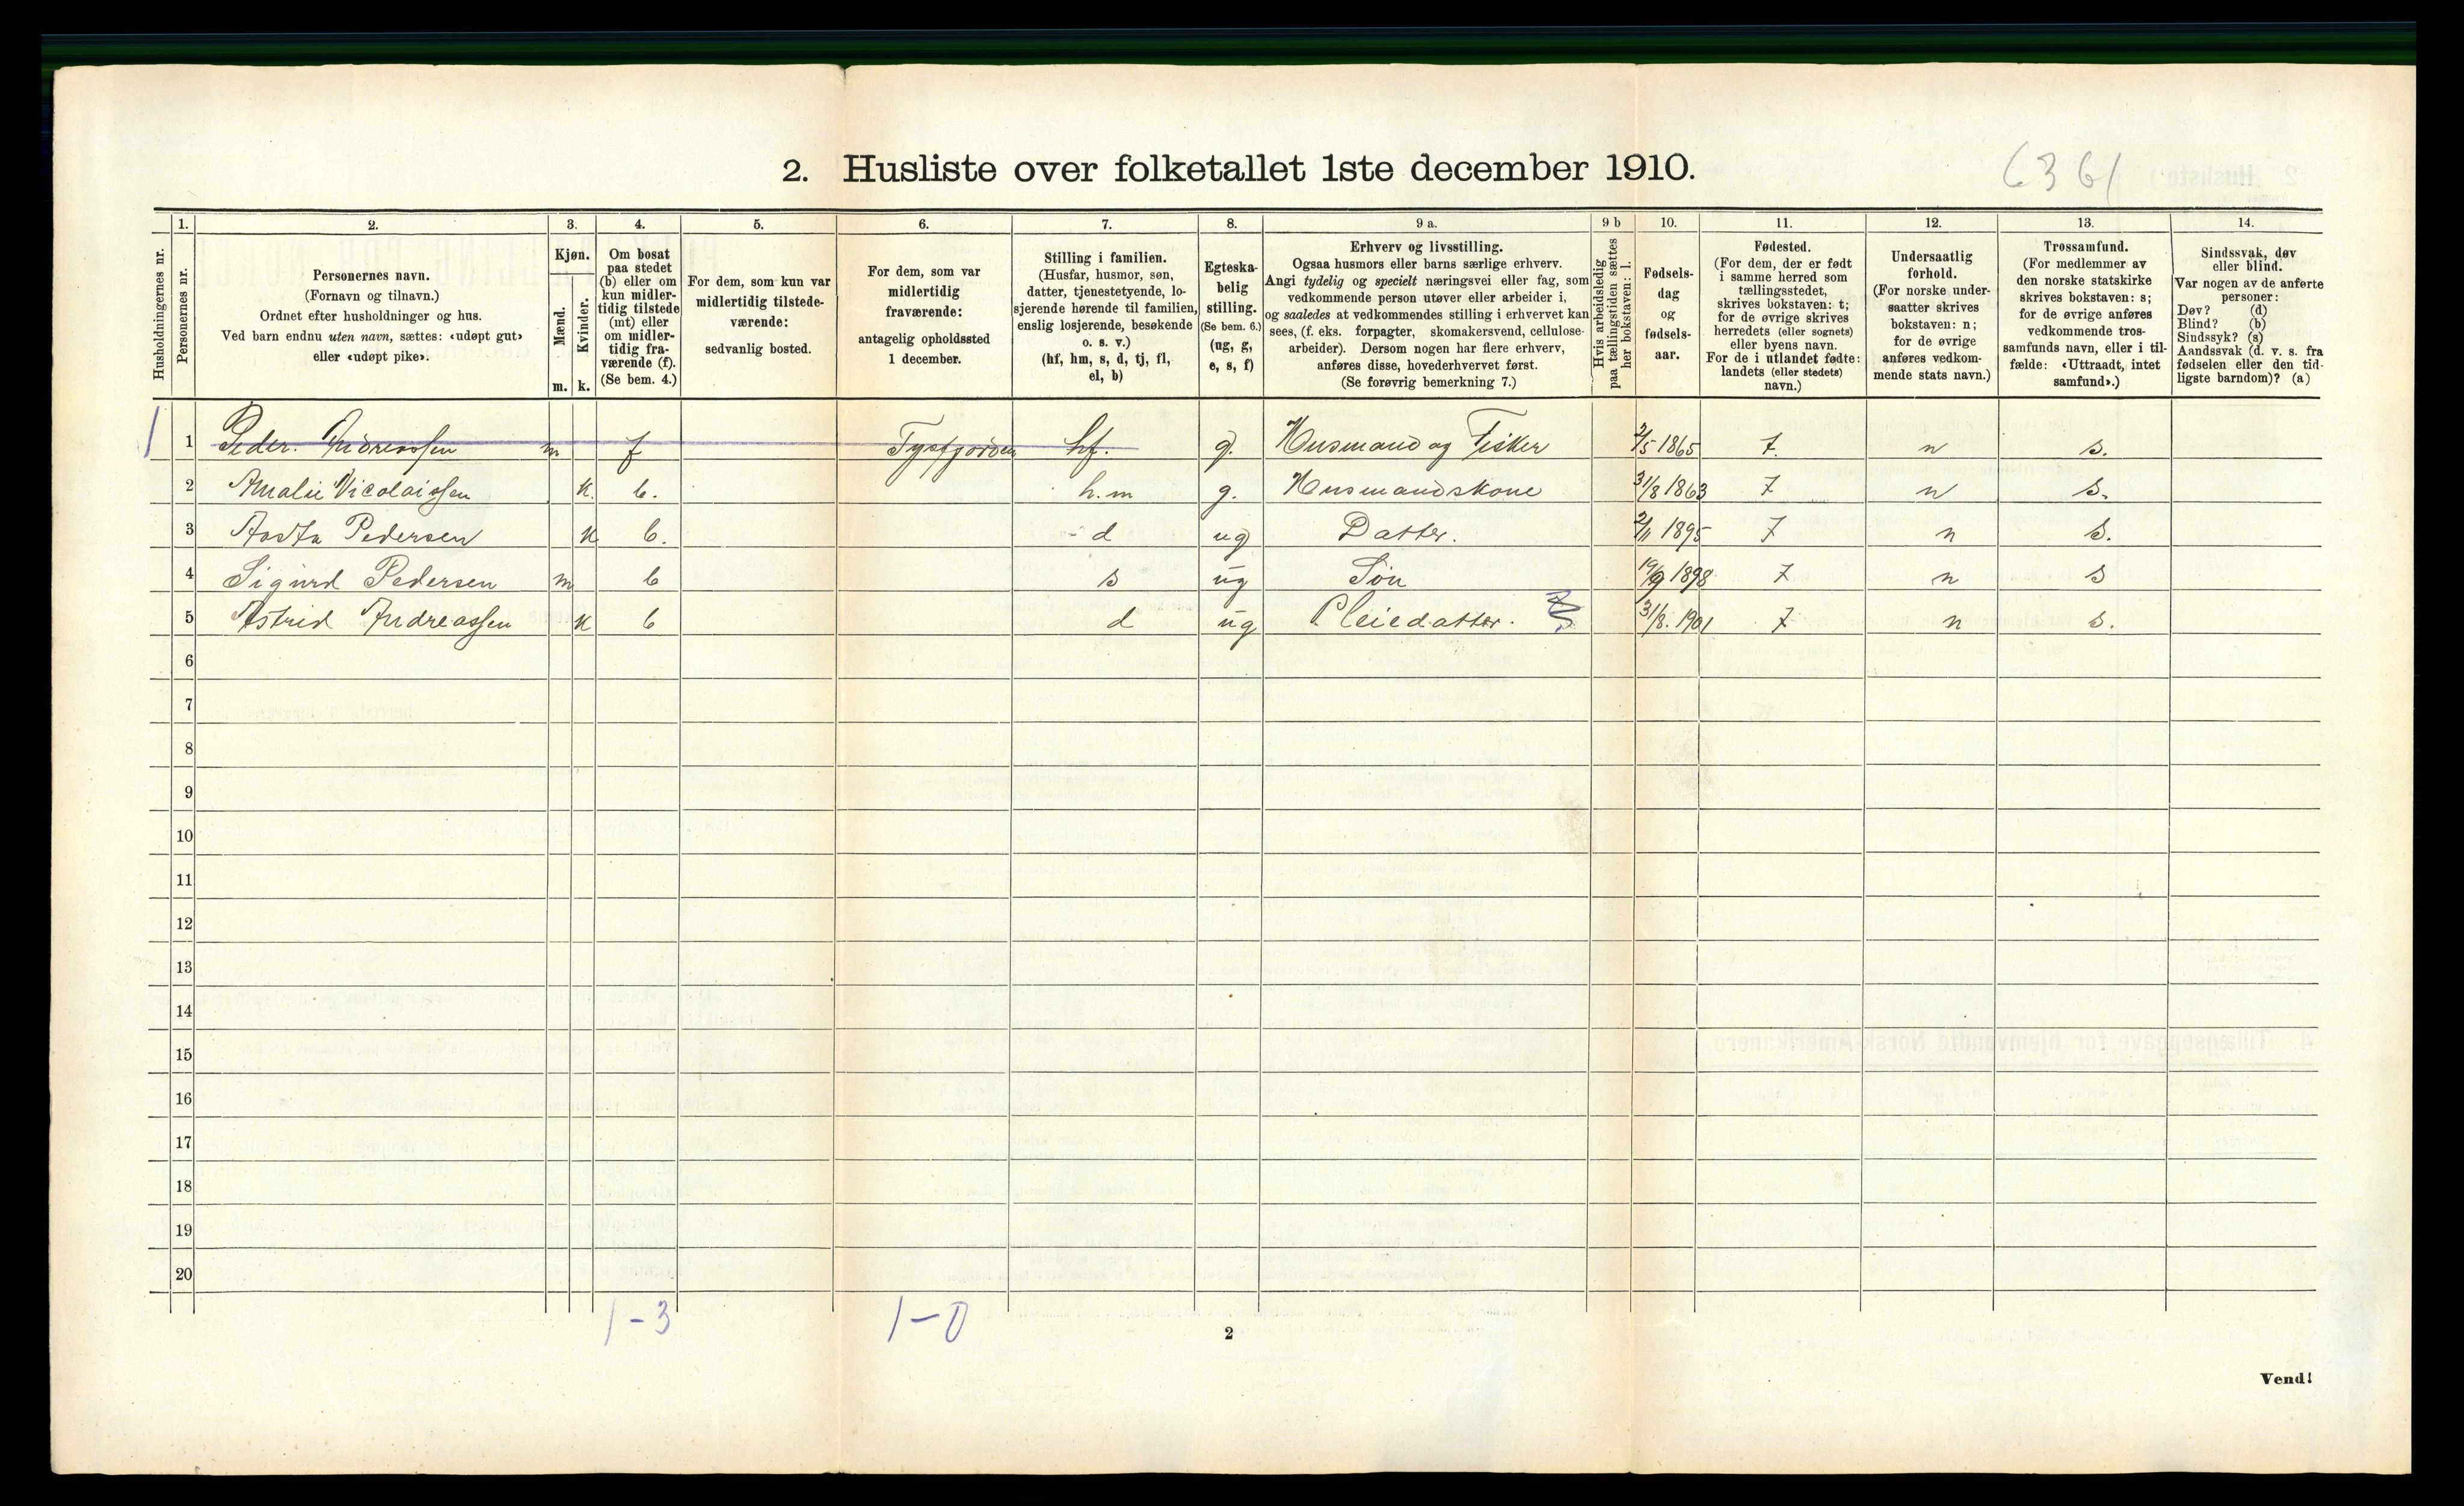 2. Husliste over folketallet 1ste december 1910.
6361
1. 2. 3. 4. 5. 6. 7. 8. 9 a. 9 b 10. 11. 12. 13. 14.
Husholdningernes nr.
Personernes nr.
Personernes navn.
(Fornavn og tilnavn.)
Ordnet efter husholdninger og hus.
Ved barn endnu uten navn, sættes: «udøpt gut»
eller «udøpt pike».
Kjøn.
Mænd.
Kvinder.
m. k.
Om bosat
paa stedet
(b) eller om
kun midler-
tidig tilstede
(mt) eller
om midler-
tidig fra-
værende (f).
(Se bem. 4.)
For dem, som kun var
midlertidig tilstede-
værende:
sedvanlig bosted.
For dem, som var
midlertidig
fraværende:
antagelig opholdssted
1 december.
Stilling i familien.
(Husfar, husmor, søn,
datter, tjenestetyende, lo-
sjerende hørende til familien,
enslig losjerende, besøkende
o. s. v.)
(hf, hm, s, d, tj, fl,
el, b)
Egteska-
belig
stilling.
(Se bem. 6.)
(ug, g,
e, s, f)
Erhverv og livsstilling.
Ogsaa husmors eller barns særlige erhverv.
Angi tydelig og specielt næringsvei eller fag, som
vedkommende person utøver eller arbeider i,
og saaledes at vedkommendes stilling i erhvervet kan
sees, (f. eks. forpagter, skomakersvend, cellulose-
arbeider). Dersom nogen har flere erhverv,
anføres disse, hovederhvervet først.
(Se forøvrig bemerkning 7.)
Hvis arbeidsledig
paa tællingstiden sættes
her bokstaven: l.
Fødsels-
dag
og
fødsels-
aar.
Fødested.
(For dem, der er født
i samme herred som
tællingsstedet,
skrives bokstaven: t;
for de øvrige skrives
herredets (eller sognets)
eller byens navn.
For de i utlandet fødte:
landets (eller stedets)
navn.)
Undersaatlig
forhold.
(For norske under-
saatter skrives
bokstaven: n;
for de øvrige
anføres vedkom-
mende stats navn.)
Trossamfund.
(For medlemmer av
den norske statskirke
skrives bokstaven: s;
for de øvrige anføres
vedkommende tros-
samfunds navn, eller i til-
fælde: «Uttraadt, intet
samfund».)
Sindssvak, døv
eller blind.
Var nogen av de anførte
personer:
Døv? (d)
Blind? (b)
Sindssyk? (s)
Aandssvak (d. v. s. fra
fødselen eller den tid-
ligste barndom)? (a)
1 1 Peder. Andreassen m f Tysfjorden hf. g. Husmand og Fisker 2/5 1865 t. n s.
2 Amalie Nicolaissen k. b. h.m g. Husmandskone 31/8 1863 t n s.
3 Aasta Pedersen k b. d ug Datter. 2/11 1895 t n s.
4 Sigurd Pedersen m b s ug Søn 19/9 1898 t n s
5 Astrid Andreassen k b d ug Pleiedatter. 31/8. 1901 t n s.
6
7
8
9
10
11
12
13
14
15
16
17
18
19
20
1-3 1-0
2
Vend!